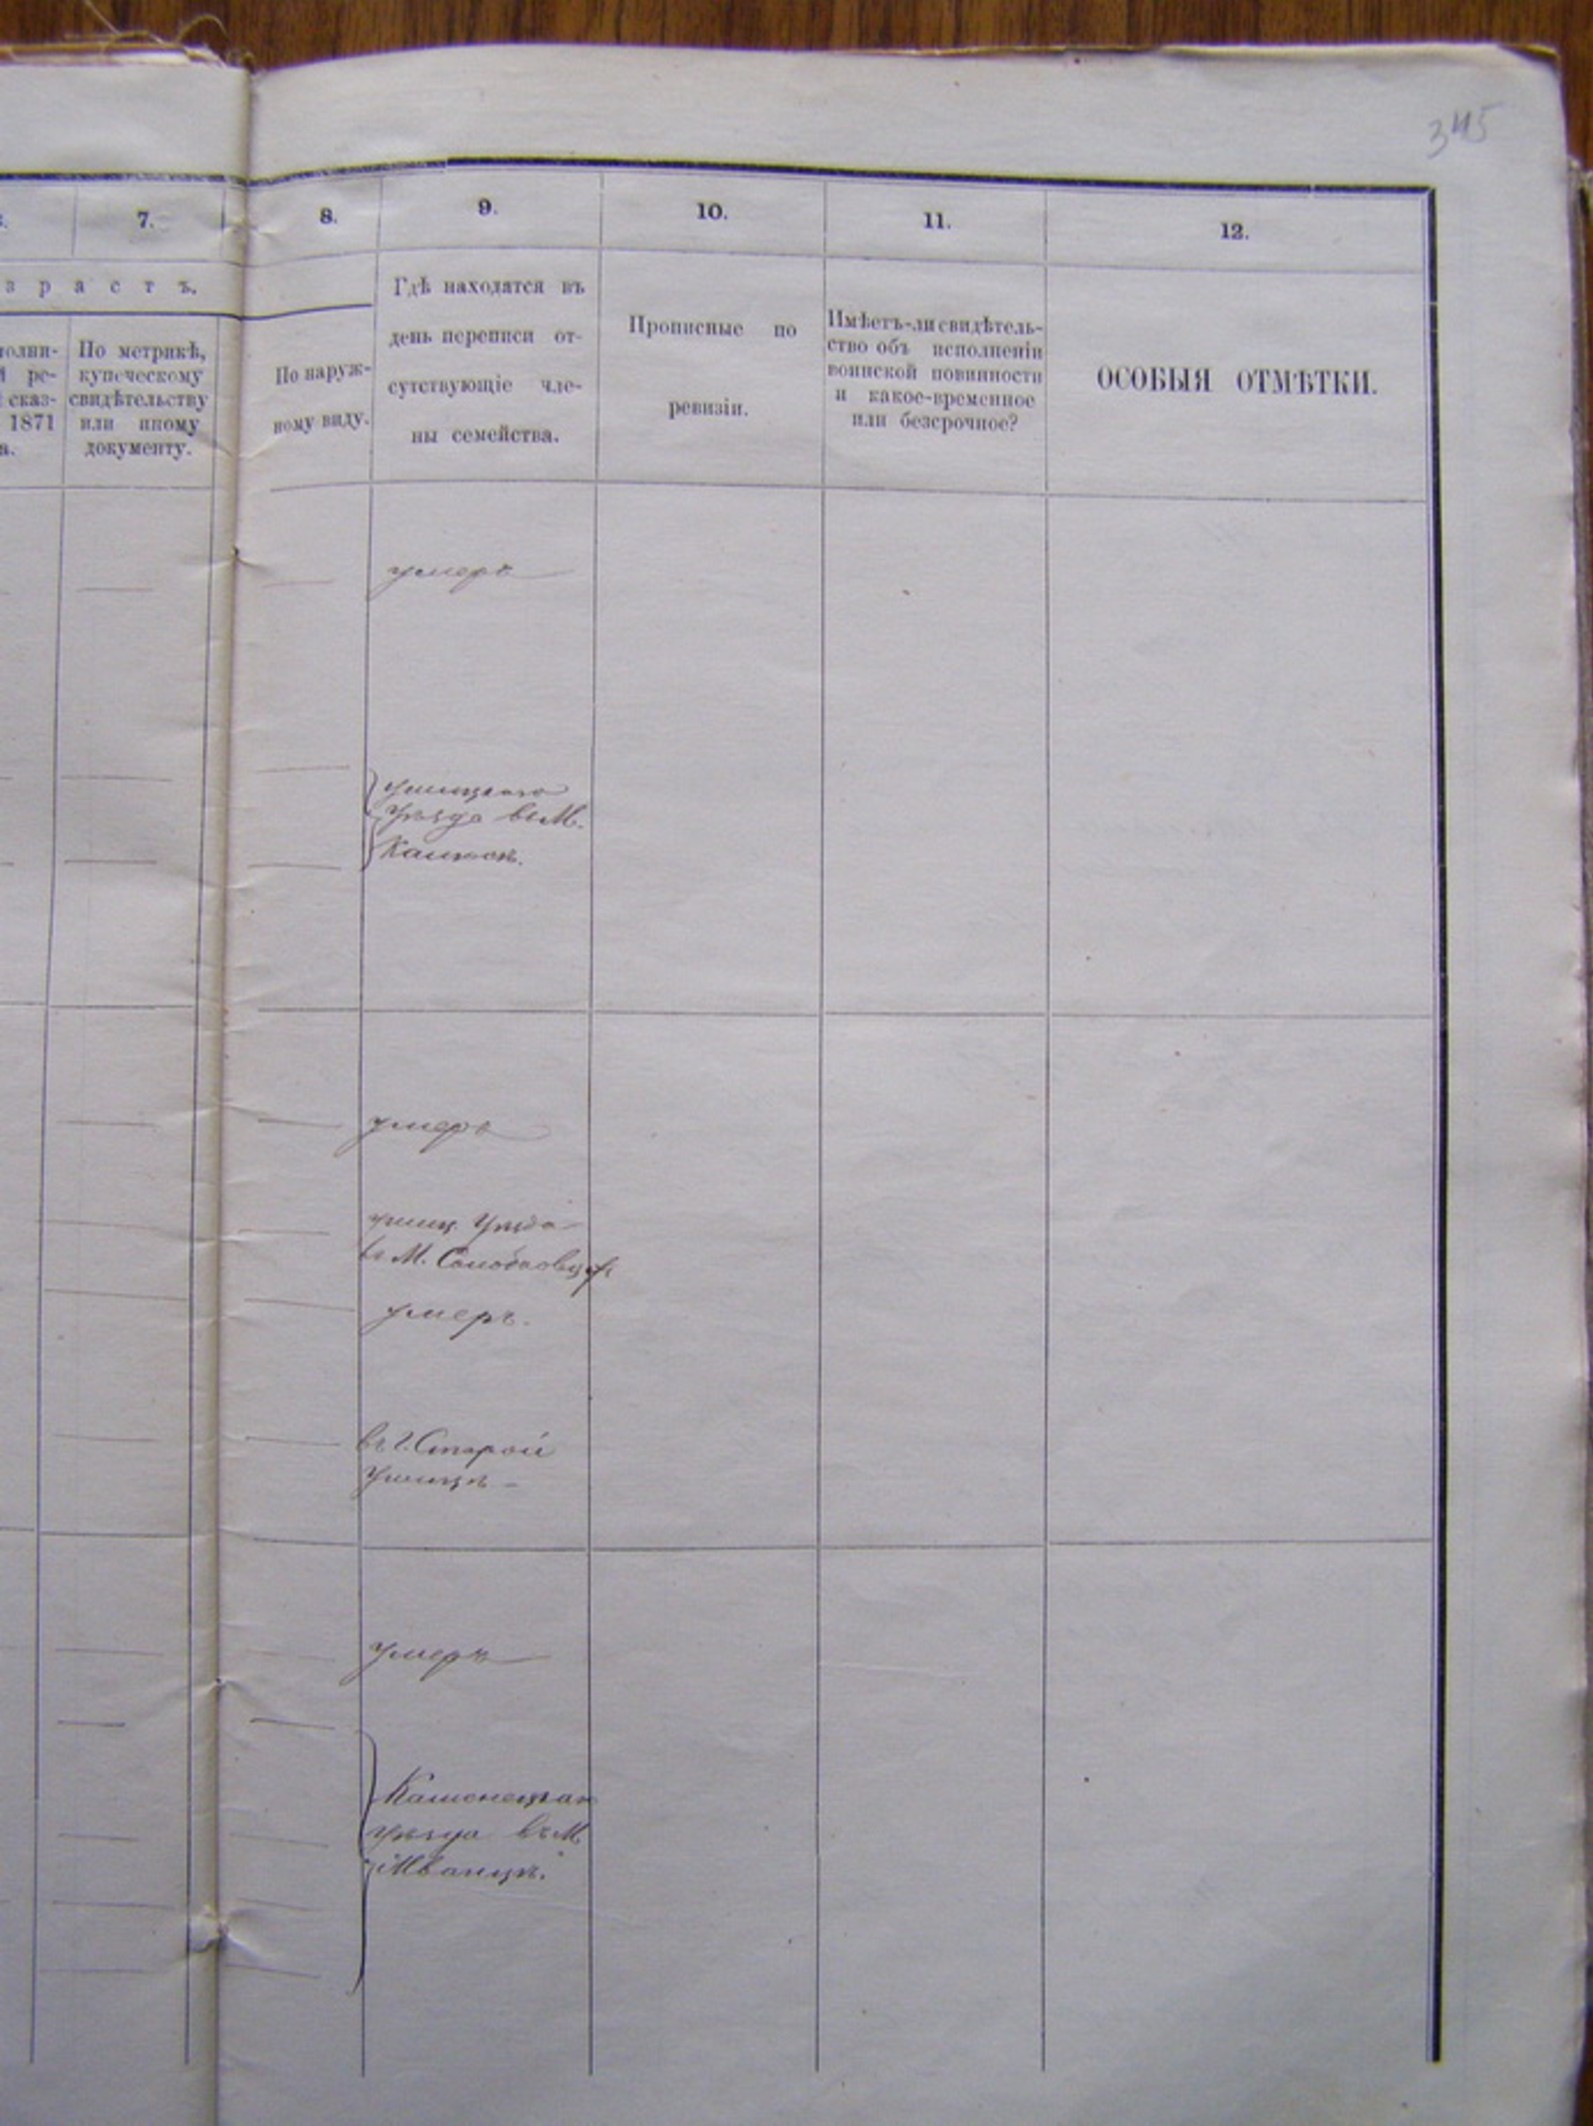 345
7.
8.
9.
10.
11.
12.
з р а с т ъ.
По метрикѣ,
купеческому
свидѣтельству
или иному
документу.
1871
По наруж-
ному виду.
Гдѣ находятся въ
день переписи от-
сутствующіе чле-
ны семейства.
Прописные по
ревизіи.
Имѣетъ-ли свидѣтель-
ство объ исполненіи
воинской повинности
и какое-временное
или безсрочное?
ОСОБЫЯ ОТМѢТКИ.
умеръ
Ушицкого
Уѣзда въ М.
умеръ
ушиц. Уѣзда
въ М. Солобковцахъ
умеръ.
въ г. Старой
Ушицѣ
умеръ
Каменецкаго
уѣзда въ М
Жванцѣ.